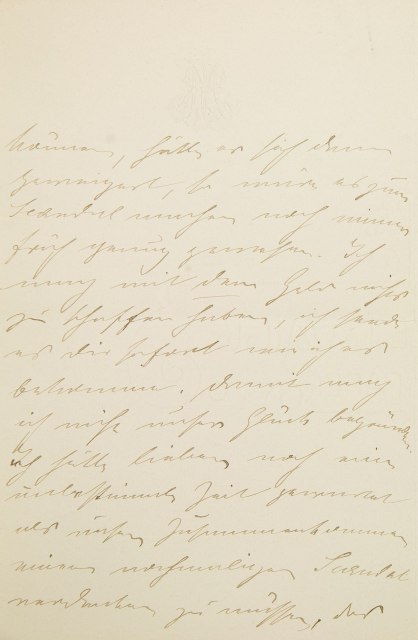 können, hätte er sich dann
geweigert, so wäre es zum
Scandal machen noch immer
früh genug gewesen. Ich
mag mit dem Geld nichts
zu schaffen haben, ich sende
es dir sofort wie ich es
bekomme. Damit mag
ich nicht unser Glück begründen.
Ich hätte lieber noch eine
unbestimmte Zeit gewartet
als unser Zusammenkommen
einem nochmaligen Scandal
verdanken zu müssen, das